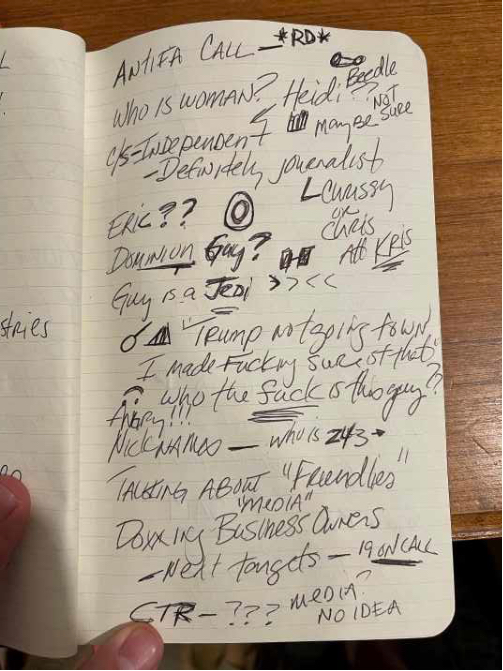 L
ANTIFA CALL — *RD*
Beedle
WHO IS WOMAN? Heidi ?? NOT
Maybe Sure
C/S-INDEPENDENT
- Definitely journalist
Chrissy
or
Chris
Att KRIS
ERIC??
DOMINION Guy?
Guy is a Jedi >><<
stries
"Trump not going to win,
I made Fucking Sure of that"
who the fuck is this guy??
ANGRY!!!
NICKNAMES — who is 243
TALKING ABOUT "Friendlies"
"MEDIA"
DOXXING Business Owners
- Next targets — 19 ON CALL
CTR - ??? MEDIA?
NO IDEA